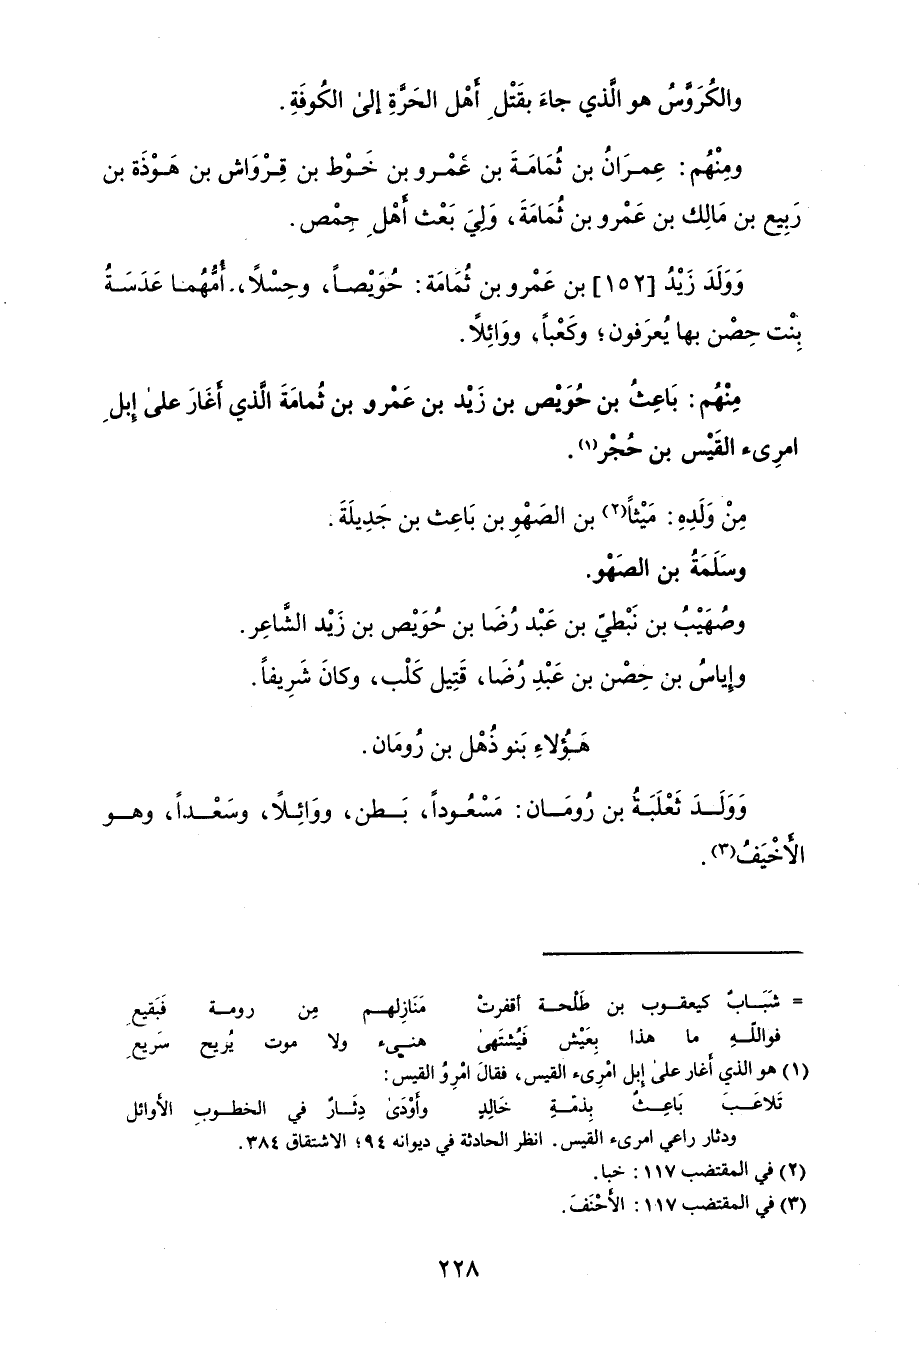 والكُرَوَّسُ هو الَّذي جاءَ بقَتْلِ أَهْل الحَرَّةِ إلىٰ الكُوفَةِ.
ومِنْهُم: عِمرَانُ بن ثُمَامَةَ بن عَمْرو بن خَوْط بن قِرْوَاش بن هَوْذَة بن
رَبِيع بن مَالِك بن عَمْرو بن ثُمَامَةَ، وَلِيَ بَعْث أَهْلِ حِمْص.
وَوَلَدَ زَيْدُ [١٥٢] بن عَمْرو بن ثُمَامَة: حُوَيْصاً، وحِسْلًا، أُمُّهُما عَدَسَةُ
بِنْت حِصْن بها يُعرَفون؛ وكَعْباً، ووَائِلًا.
مِنْهُم: بَاعِثُ بن حُوَيْص بن زَيْد بن عَمْرو بن ثُمامَةَ الَّذي أَغَارَ علىٰ إبلِ
امرِىء القَيْس بن حُجْر(١).
مِنْ وَلَدِهِ: مَيْثاً(٢) بن الصَهْوِ بن بَاعِث بن جَدِيلَةَ.
وسَلَمَةُ بن الصَهْو.
وصُهَيْبُ بن نَبْطيّ بن عَبْد رُضَا بن حُوَيْص بن زَيْد الشَّاعِر.
وإياسُ بن حِصْن بن عَبْدِ رُضَا، قَتِيل كَلْب، وكانَ شَرِيفاً.
هَؤُلاءِ بَنو ذُهْل بن رُومَان.
وَوَلَدَ ثَعْلَبَةُ بن رُومَان: مَسْعُوداً، بَطن، ووَائِلًا، وسَعْداً، وهو
الأَخْيَفُ(٣).
= شَبَابٌ كيعقوب بن طَلْحة أقفرتْ مَنَازِلهم مِن رومة فَبَقيعِ
فواللّهِ ما هذا بِعَيْش فَيُشتَهىٰ هنيء ولا موت يُريح سَريعِ
(١) هو الذي أَغار علىٰ إبل امْرِىء القيس، فقالَ امْرِؤُ القيس:
تَلاعَبَ بَاعِثٌ بِذمّةِ خَالِدٍ وأَوْدَىٰ دِثَارٌ في الخطوبِ الأوائل
ودثار راعي امرىء القيس. انظر الحادثة في ديوانه ٩٤؛ الاشتقاق ٣٨٤.
(٢) في المقتضب ١١٧: خبا.
(٣) في المقتضب ١١٧: الأَحْنَفَ.
٢٢٨